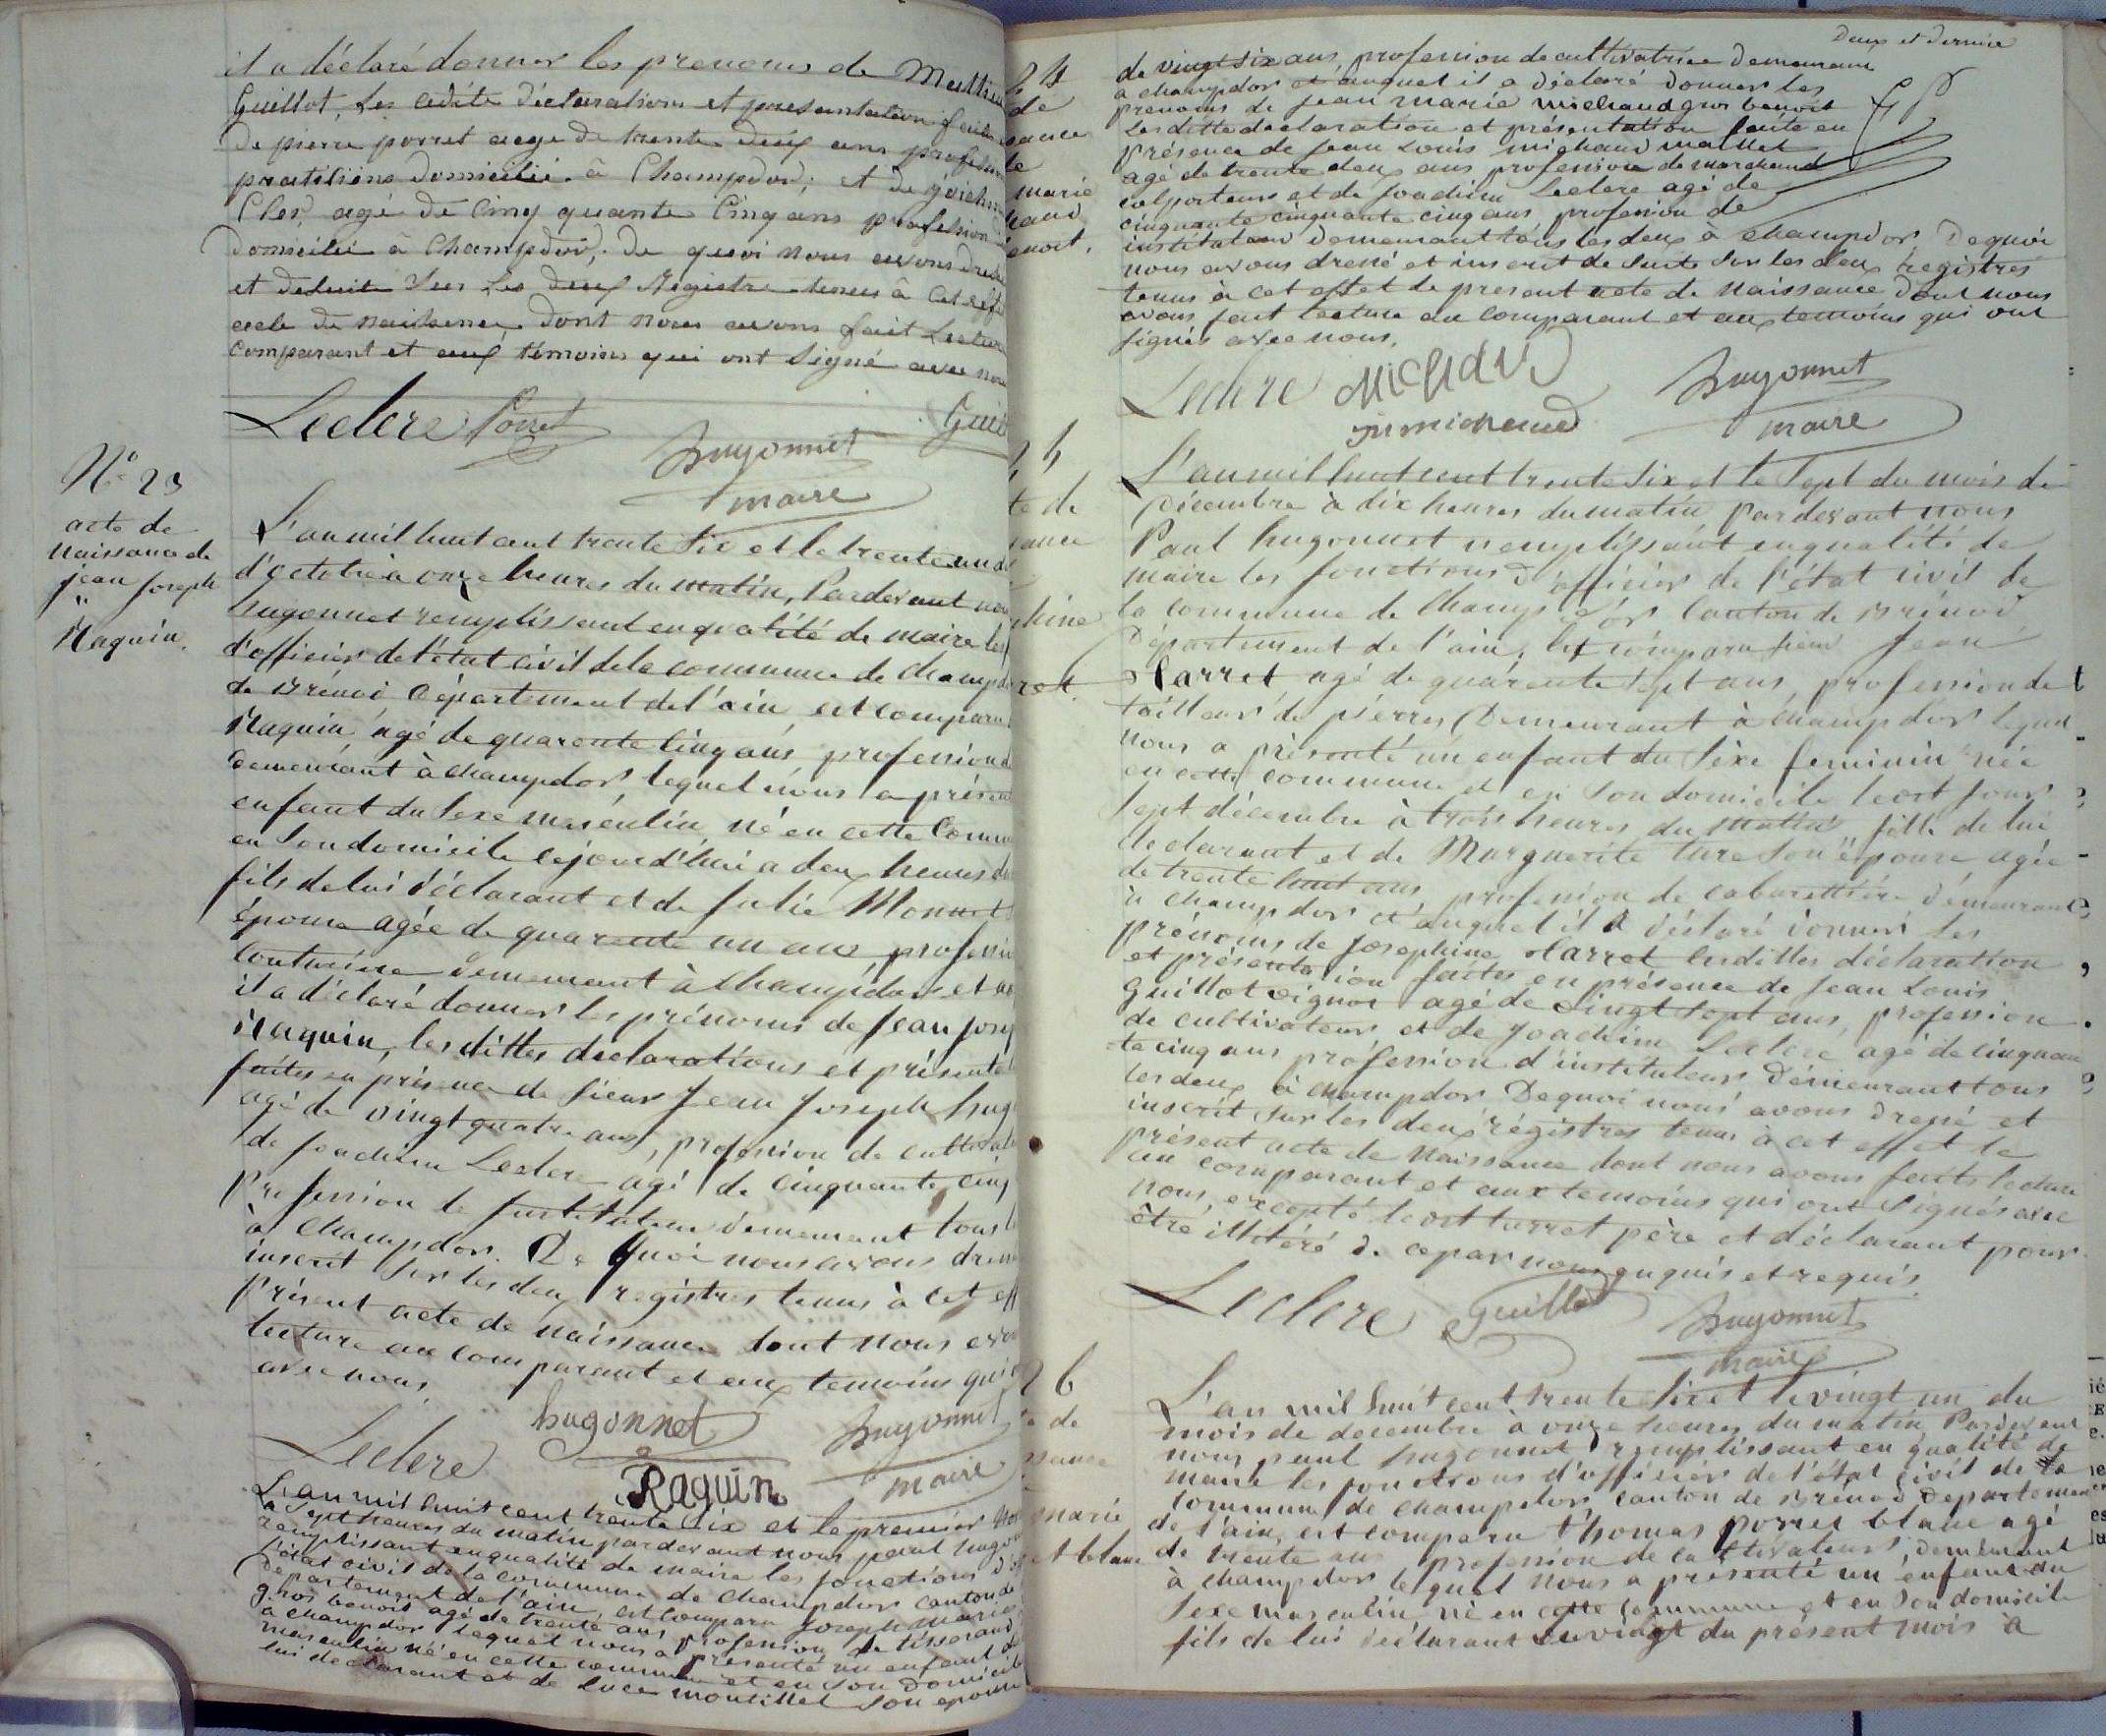 il a déclaré donner les prenoms de
Guillot, Les cedite déclaration et presentation
De pierre porret age de trente deux ans profession
domicilié à Champdor; et de
agé de Cinq quante Cinq ans profession
domicilié à Champdor; De quoi nous avons
et desuite Sur Les deux Registre tenus à cet
acte de naissance dont nous avons fait Lecture
Comparant et aux témoins qui ont Signé avec nous
Leclerc Porret
hugonnet
maire
N° 23
acte de
naissance de
jean joseph
Raquin.
L'an mil huit cent trente six et le trente un
d'octobre à onze heures du matin, Pardevant nous
hugonnet remplissant en qualité de maire les
d'officier de l'état civil de la commune de champdor
de Brénod Département de l'ain, est comparu
Raquin, agé de quarente cinq ans, profession
demeurant à champdor, lequel nous a présenté
enfant du Sexe masculin, né en cette Commune
en Son domicile cejourd'hui a deux heures du
fils de lui déclarant et de julie Monnet
épouse agée de quarente un ans, profession
demeurant à Champdor et
il a déclaré donner les prénoms de jean
Raquin, les dittes declarations et présentation
faites en présence de Sieur Jean Joseph
agé de vingt quatre ans, profession de
de joachim Leclerc agé de cinquante cinq
profession de Instituteur demeurant tous
à Champdor. De Quoi nous avons
inscrit Sur les deux registres tenus à cet
Présent acte de naissance dont nous
lecture au comparant et aux temoins qui
avec nous
Leclerc hugonnet hugonnet
Raquin maire
L'an mil huit cent trente Six et le premier
à Sept heures du matin pardevant nous paul
remplissant en qualité de maire les fonctions
l'état civil de la commune de champdor canton de
Département de l'ain, est comparu joseph marie
gros benoit agé de trente ans profession de tisserand
à champdor lequel nous a présenté un enfant
masculin né en cette commune et en Son domicile
lui declarant et de Luce montillet Son epouse
Deux et dernier
de vingt six ans, profession de cultivatrice demeurant
à champdor et auquel il a déclaré donner les
prenoms de jean marie michaud gros benoit
Les ditte declaration et présentation faite en
présence de jean Louis michaud maillet
agé de trente deux ans profession de marchand
colporteur et de joachim Leclerc agé de
cinquante cinquante cinq ans profession de
instituteur demeurant tous les deux à champdor. De quoi
nous avons dressé et inscrit de Suite Sur les deux registres
tenus à cet effet le present acte de naissance dont nous
avons fait lecture au comparant et aux temoins qui ont
signés avec nous.
Leclerc hugonnet
maire
L'an mil huit cent trente Six et le Sept du mois de
Décembre à dix heures du matin pardevant nous
Paul hugonnet remplissant en qualité de
maire les fonctions d'officier de l'état civil de
la commune de Champdor Canton de Brénod
Département de l'ain, est comparu sieur jean
agé de quarente Sept ans, profession de
tailleur de pierres Demeurant à champdor lequel
nous a présenté un enfant du Sexe feminin née
en cette commune et en Son domicile
Sept décembre à trois heures du matin, fille de lui
declarant et de Marguerite Son épouse, agée
de trente huit ans, profession de cabarettière demeurant
à champdor et auquel il a déclaré donner les
prénoms de josephine les dittes déclaration
et présentation faites en présence de jean Louis
Guillot agé de vingt Sept ans, profession
de cultivateur, et de joachim Leclerc agé de cinquan
te cinq ans profession d'instituteur Demeurant tous
les deux à champdor De quoi nous avons dressé et
inscrit Sur les deux régistres tenus à cet effet le
présent acte de Naissance dont nous avons faits lecture
au comparant et aux temoins qui ont Signés avec
nous, excepté père et déclarant pour
être illetéré de ce par nous enquis et requis
Leclerc Guillot hugonnet
maire
L'an mil huit cent trente Six et le vingt un du
mois de decembre à onze heures du matin Pardevant
nous paul hugonnet remplissant en qualité de
maire les fonctions d'officier de l'état civil de la
commune de Champdor canton de Brénod Departement
de l'ain, est comparu Thomas porret blanc agé
de trente ans profession de cultivateur, demeurant
à champdor lequel nous a présenté un enfant du
Sexe masculin né en cette commune et en Son domicile
fils de lui déclarant Le vingt du présent mois à